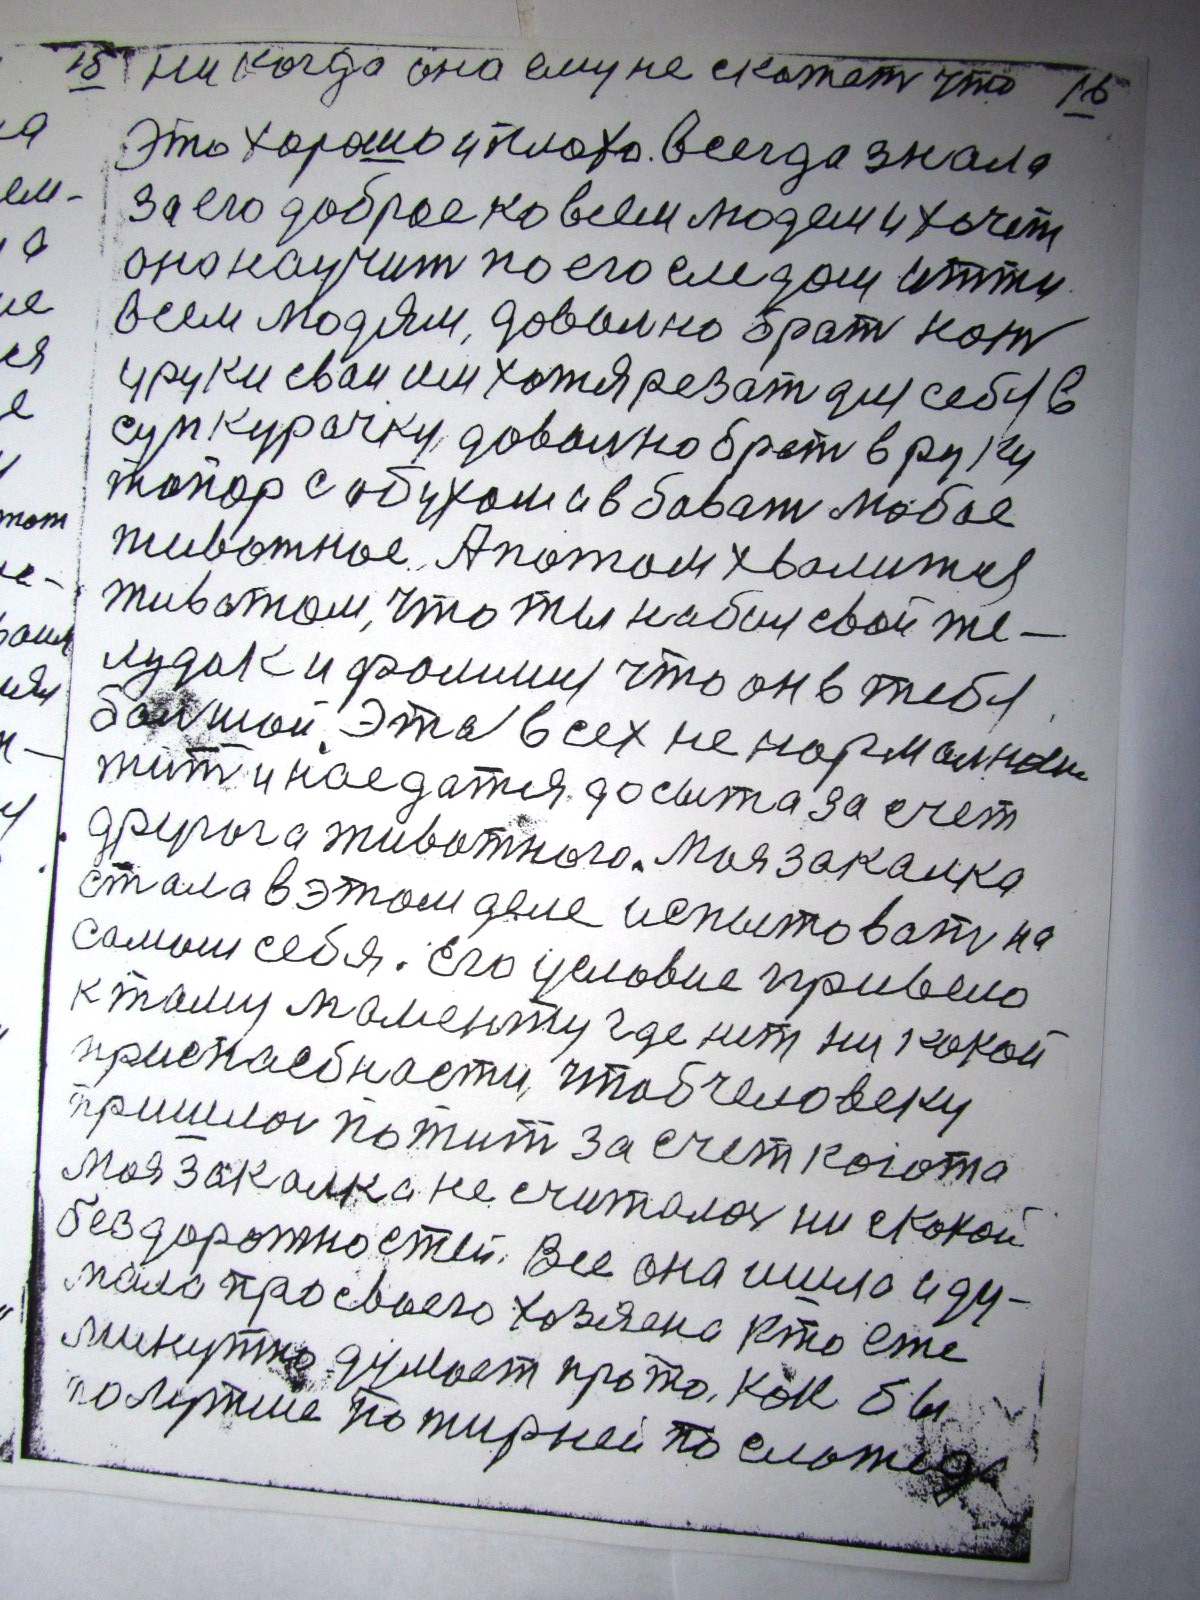 15 ни когда она ему не скажет что 16
Это хорошо и плохо. Всегда знала
за его доброе ко всем людем и хочет
она научит по его следом итти
всем людям, довольно брат нож
у руки сваи им хотя резат для себя в
суп курачку, довольно брат в руки
топор с обухом и вбават любое
животное. А потом хвалится
живатом, что ты набил свой же-
лудак и фалиш что он в тебя
балшой. Эта всех не нормално
жит и наедатся досыта за счет
другога животного. Моя закалка
стала в этом деле испытоват на
самом себя. Его условие привело
к таму моменту где нет ни какой
приспасбнасти, чтоб человеку
пришлос пожит за счет когота
Моя закалка не считалас ни скокой
бездорожностей. Все она ишла иду-
мала про своего хозяена кто еже
минутно думает прото, как бы
полутше пожирней по сложе